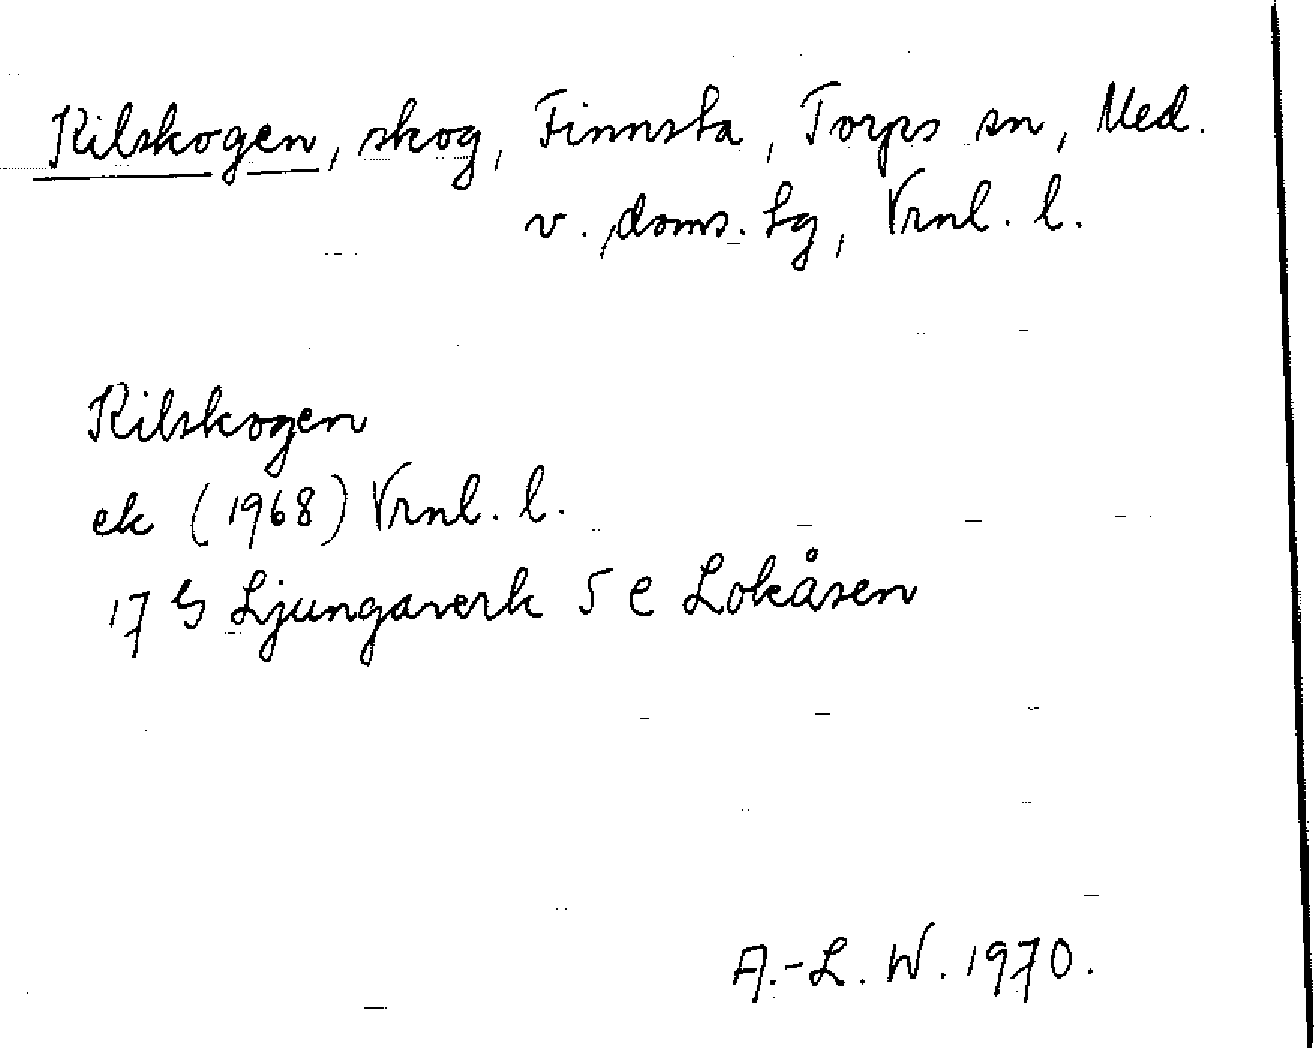 Kilskogen, skog, Finnsta, Torps sn, Med.
v. doms. lg, Vrnl. l.
Kilskogen
ek (1968) Vrnl. l.
17 G Ljungaverk 5 e Lokåsen
A.-L. W. 1970.